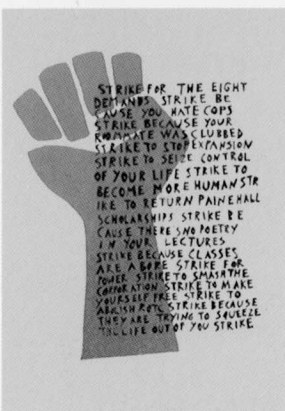 STRIKE FOR THE EIGHT
DEMANDS STRIKE BE
CAUSE YOU HATE COPS
STRIKE BECAUSE YOUR
ROOMMATE WAS CLUBBED
STRIKE TO STOP EXPANSION
STRIKE TO SEIZE CONTROL
OF YOUR LIFE STRIKE TO
BECOME MORE HUMAN STR
IKE TO RETURN PAINEHALL
SCHOLARSHIPS STRIKE BE
CAUSE THERES NO POETRY
IN YOUR LECTURES
STRIKE BECAUSE CLASSES
ARE A BORE STRIKE FOR
POWER STRIKE TO SMASH THE
CORPORATION STRIKE TO MAKE
YOURSELF FREE STRIKE TO
ABOLISH ROTC STRIKE BECAUSE
THEY ARE TRYING TO SQUEEZE
THE LIFE OUT OF YOU STRIKE